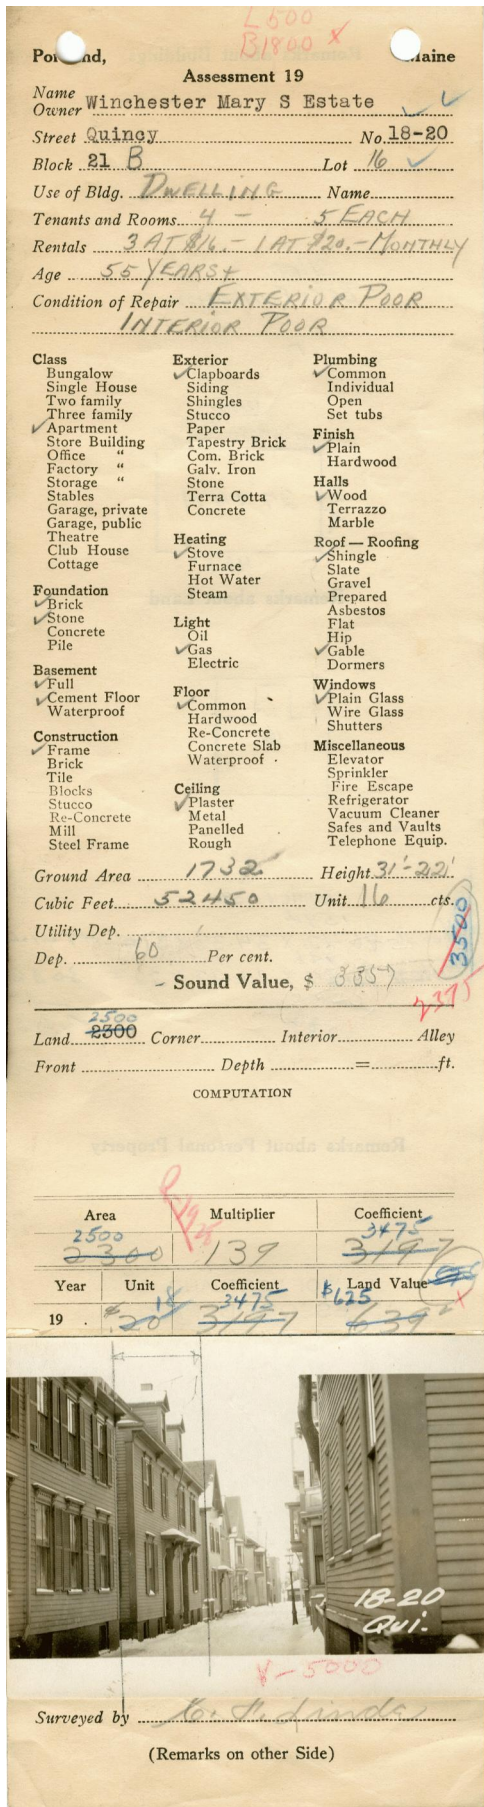 L500
B1800 x
Portland, Maine
Assessment 19
Name
Owner Winchester Mary S Estate
Street Quincy No. 18-20
Block 21 B Lot 16
Use of Bldg. DWELLING Name
Tenants and Rooms 4 - 5 EACH
Rentals 3 AT $16.- 1 AT $20.- MONTHLY
Age 55 YEARS+
Condition of Repair EXTERIOR POOR
INTERIOR POOR
Class
Bungalow
Single House
Two family
Three family
✓ Apartment
Store Building
Office "
Factory "
Storage "
Stables
Garage, private
Garage, public
Theatre
Club House
Cottage
Foundation
✓ Brick
✓ Stone
Concrete
Pile
Basement
✓ Full
✓ Cement Floor
Waterproof
Construction
✓ Frame
Brick
Tile
Blocks
Stucco
Re-Concrete
Mill
Steel Frame
Exterior
✓ Clapboards
Siding
Shingles
Stucco
Paper
Tapestry Brick
Com. Brick
Galv. Iron
Stone
Terra Cotta
Concrete
Heating
✓ Stove
Furnace
Hot Water
Steam
Light
Oil
✓ Gas
Electric
Floor
✓ Common
Hardwood
Re-Concrete
Concrete Slab
Waterproof
Ceiling
✓ Plaster
Metal
Panelled
Rough
Plumbing
✓ Common
Individual
Open
Set tubs
Finish
✓ Plain
Hardwood
Halls
✓ Wood
Terrazzo
Marble
Roof — Roofing
✓ Shingle
Slate
Gravel
Prepared
Asbestos
Flat
Hip
✓ Gable
Dormers
Windows
✓ Plain Glass
Wire Glass
Shutters
Miscellaneous
Elevator
Sprinkler
Fire Escape
Refrigerator
Vacuum Cleaner
Safes and Vaults
Telephone Equip.
Ground Area 1732 Height 31'-22'
Cubic Feet 52450 Unit 16 cts.
Utility Dep.
3500
Dep. 60 Per cent.
- Sound Value, $ 3357
2375
2500
Land 2300 Corner Interior Alley
Front Depth = ft.
COMPUTATION
1925
Area Multiplier Coefficient
2500 3475
2300 139 3197
Year Unit Coefficient Land Value
18 3475 $625
19 . $20 3197 639 x
18-20
Qui.
V-5000
Surveyed by
(Remarks on other Side)